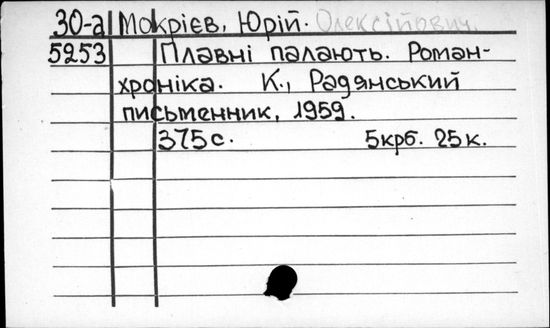 30-а Мокрієв, Юрій. Олексійович.
5253 Плавні палають. Роман-
хроніка. К., Радянський
письменник, 1959.
375с. 5крб. 25к.